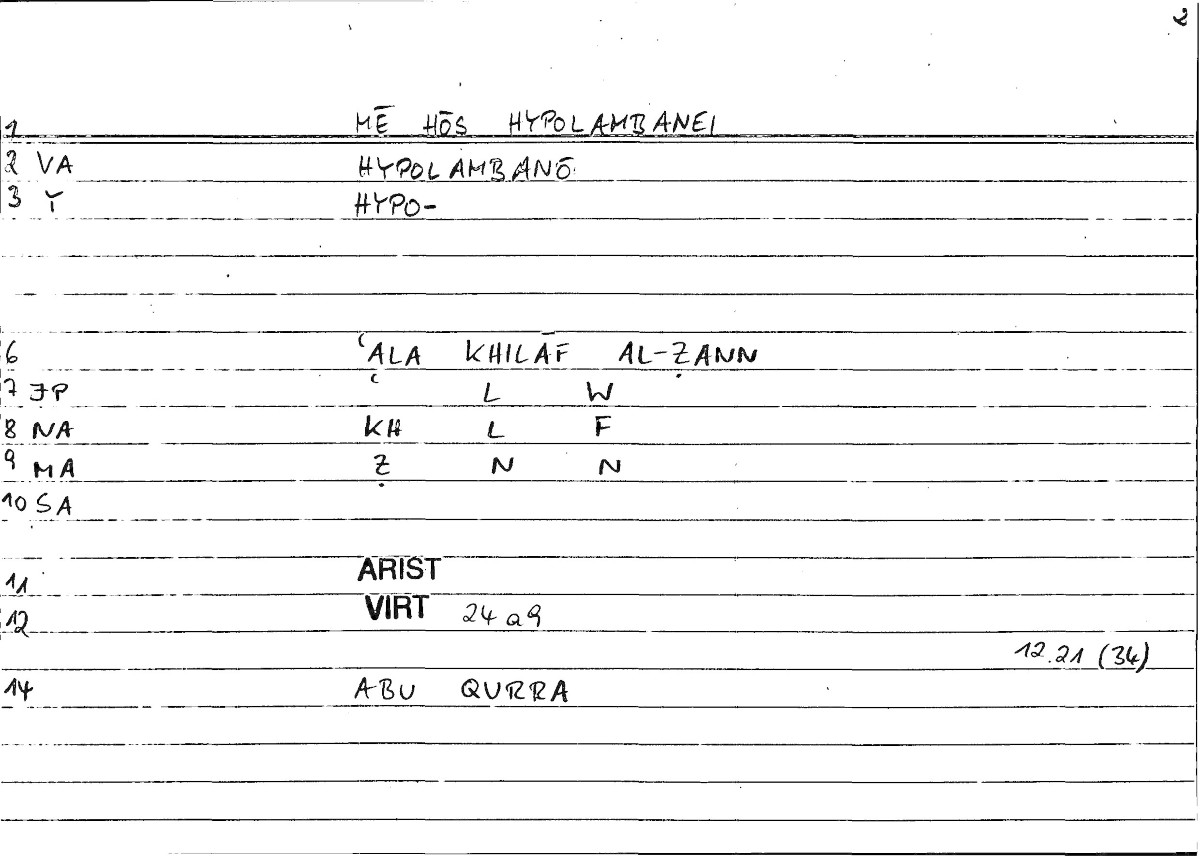 2
1 MĒ HŌS HYPOLAMBANEI
2 VA HYPOLAMBANŌ
3 Y HYPO-
6 ʿALA KHILĀF AL-ẒANN
7 JP ʿ L W
8 NA KH L F
9 MA Ẓ N N
10 SA
11 ARIST
12 VIRT 24 a9
12.21 (34)
14 ABU QURRA